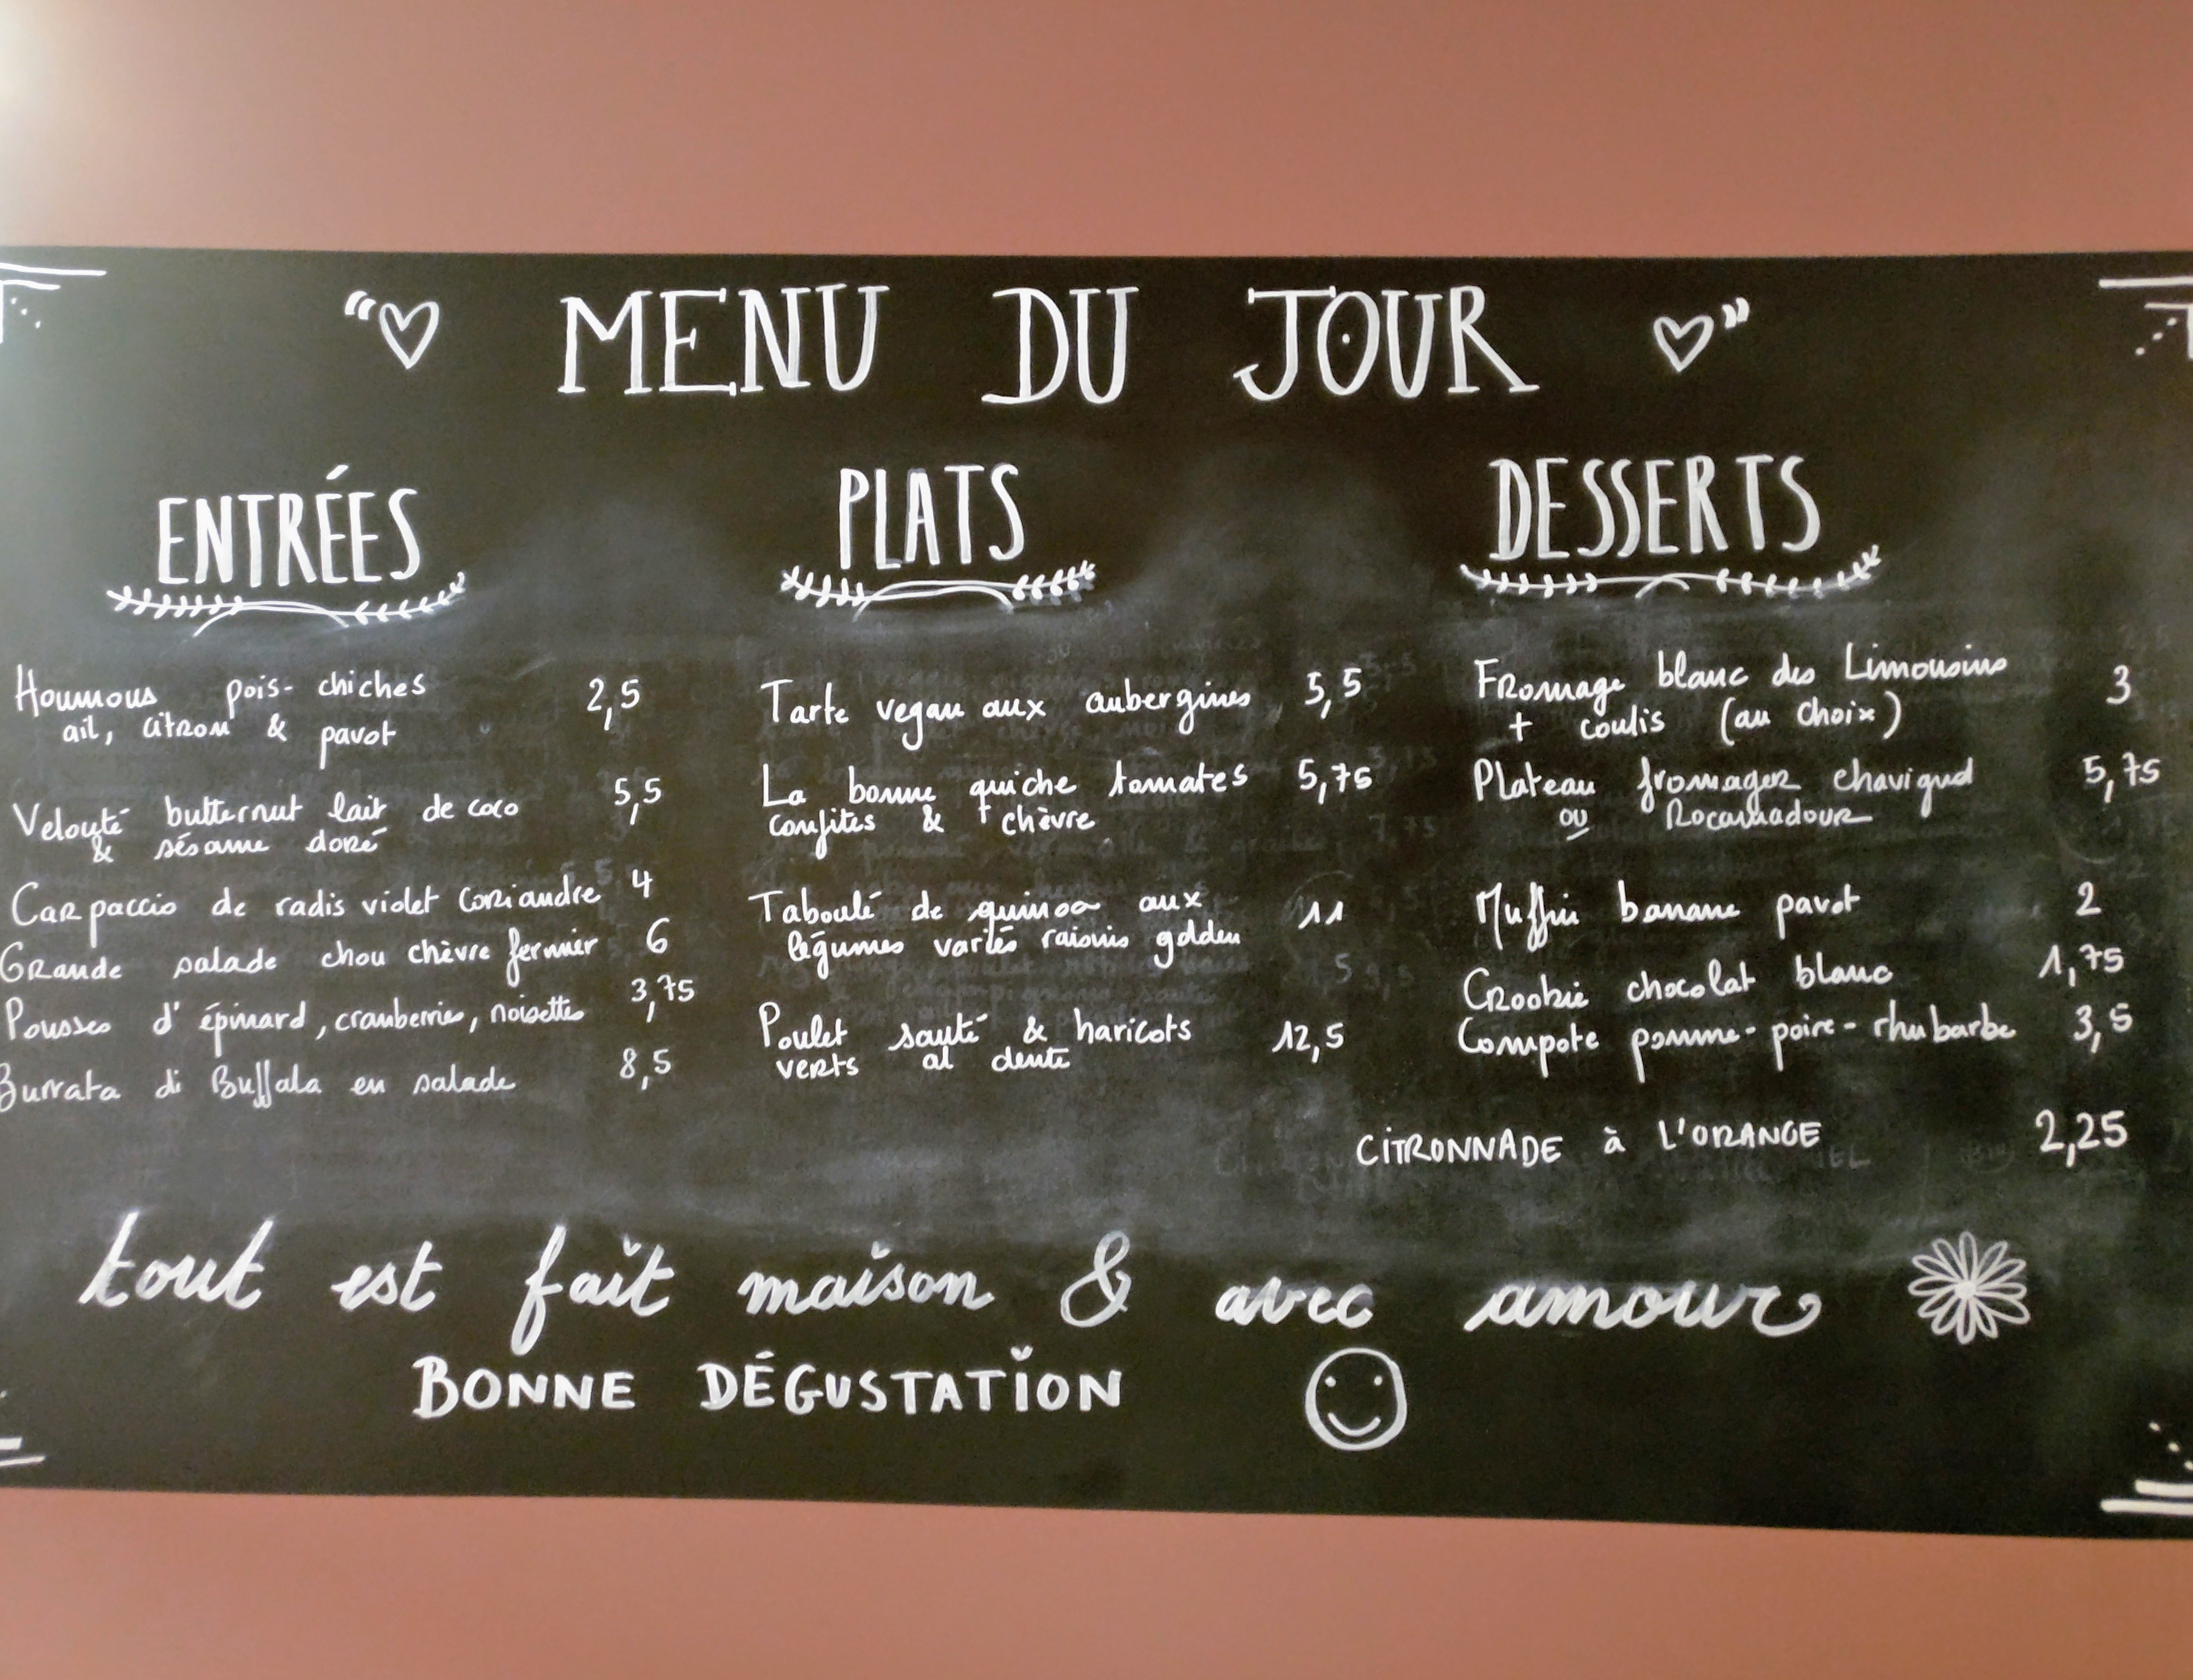 "♡ MENU DU JOUR ♡"
ENTRÉES
Houmous pois-chiches 2,5
ail, citron & pavot
Velouté butternut lait de coco 5,5
& sésame doré
Carpaccio de radis violet coriandre 4
Grande salade chou chèvre fermier 6
Pousses d'épinard, cranberries, noisettes 3,75
Burrata di Buffala en salade 8,5
PLATS
Tarte vegan aux aubergines 5,5
La bonne quiche tomates 5,75
confites & chèvre
Taboulé de quinoa aux 11
légumes variés raisins golden
Poulet sauté & haricots 12,5
verts al dente
DESSERTS
Fromage blanc des Limousins 3
+ coulis (au choix)
Plateau fromager chavignol 5,75
ou Rocamadour
Muffin banane pavot 2
Crookie chocolat blanc 1,75
Compote pomme-poire-rhubarbe 3,5
CITRONNADE à L'ORANGE 2,25
tout est fait maison & avec amour
BONNE DÉGUSTATION